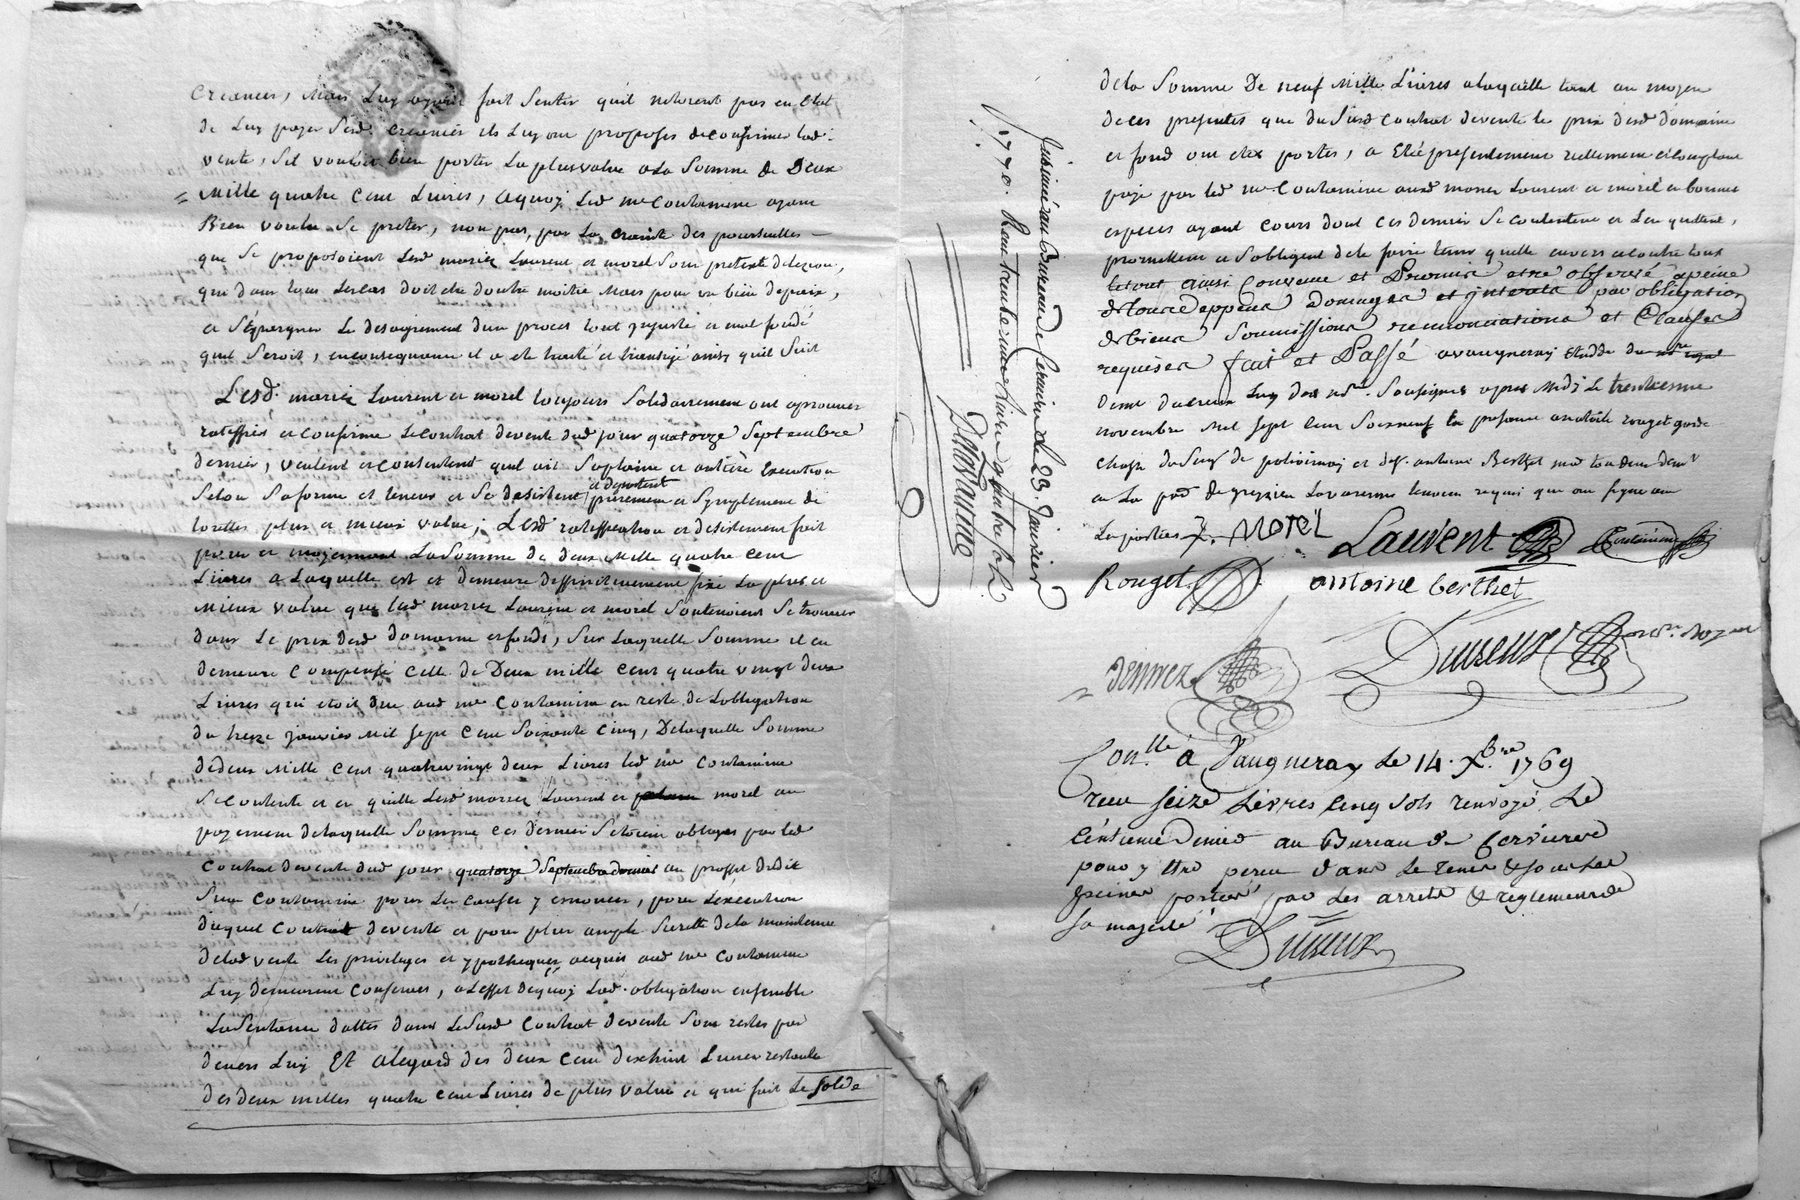 creances, Mais Luy ayant fait Sentir quil netoient pas en Etat
de Luy payer Sesd. creances ils Luy ont proposés de confirmer lad.
vente, Sil vouloit bien porter La plus value a La Somme de Deux
Mille quatre Cent Livres, aquoy Led me Contamine ayant
Bien voulu Se preter, non pas, par La crainte des poursuittes
que Se proposoient Lesd mariez Laurent et morel Sous pretexte de lezion,
que dans tous Les cas doit etre doutre moitié Mais pour un bien de paix,
et Separgner Le desagrement dun proces tout injuste et mal fondé
quil Seroit, en consequence il a eté traité et transigé ainsy quil Suit
Lesd. mariez Laurent et morel toujours Solidairement ont aprouvés
ratiffiés et confirmé Le Contrat de vente dud jour quatorze Septembre
dernier, veulent et consentent quil ait Sa plaine et entière Execution
Selon Sa forme et teneur et Se desistent et departent purement et Symplement de
toutes plus et mieux value; Lesd ratiffication et desistement fait
pour et moyennant La Somme de deux Mille quatre Cent
Livres a Laquelle est et demeure deffinitivement fixé La plus et
Mieux value que Lesd mariez Laurent et morel Soutenoient Se trouver
dans Le prix desd domaine et fonds, Sur Laquelle Somme il en
demeure Compensé Celle de Deux mille Cent quatre vingt deux
Livres qui etoit due aud me Contamine en reste de Lobligation
du treize janvier Mil Sept Cent Soixante Cinq, De laquelle Somme
de deux Mille Cent quatrevingt deux Livres Led me Contamine
Se contente et en quitte Lesd mariez Laurent et morel au
payement de laquelle Somme ces derniers Setoient obligés par led
Contrat de vente dud jour quatorze Septembre dernier au proffit dudit
Sieur Contamine pour Les causes y enoncés, pour Lexécution
duquel Contrat de vente et pour plus ample Sureté de la maintenue
de lad vente Les privileges et ypotheques acquis aud me Contamine
Luy demeurent Conservés, a Leffet dequoy Lad. obligation ensemble
La Sentence dattés dans Le Susd Contrat de vente Sont restés par
devers Luy Et a Legard des deux Cent dixhuit Livres restante
des deux milles quatre Cent Livres de plus value et qui fait Le Solde
Insinué au Bureau de Cerviere Le 23. Janvier
1770. Reçu trente
Delavaurine
de la Somme De neuf Mille Livres a laquelle tant au moyen
de ces presentes que du Susd Contrat de vente le prix desd domaine
et fond ont etés portés, a Eté presentement reellement et comptant
payé par led me Contamine aux mariez Laurent et morel en bonnes
especes ayant cours dont ces dernier Se contentent et Len quittent,
promettent et Sobligent de le faire tenir quitte envers et contre tous
le tout ainsi Convenu et Promis etre observé a peine
de tous depens domages et interets par obligation
de biens Soumissions renonciations et Clauses
requises fait et Passé a vaugneray Etude du
novembre Mil Sept Cent Soixneuf En presence
Chasse
Les parties J. MOREL Laurent Contamine
Rouget antoine berthet
Dennez Duvreux nore. Royal
Conllé a Vaugneray Le 14. Xbre. 1769
reçu Seize Livres Cinq Sols renvoyé Le
Centieme Denier au Bureau de Cerviere
pour y etre perçu dans Le tems & sous les
peines portés par Les arrets & reglements de
Sa majesté
Duvreux